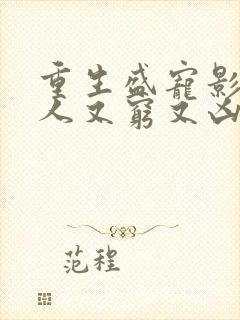 重生盛寵影
人又窮又凶
范程